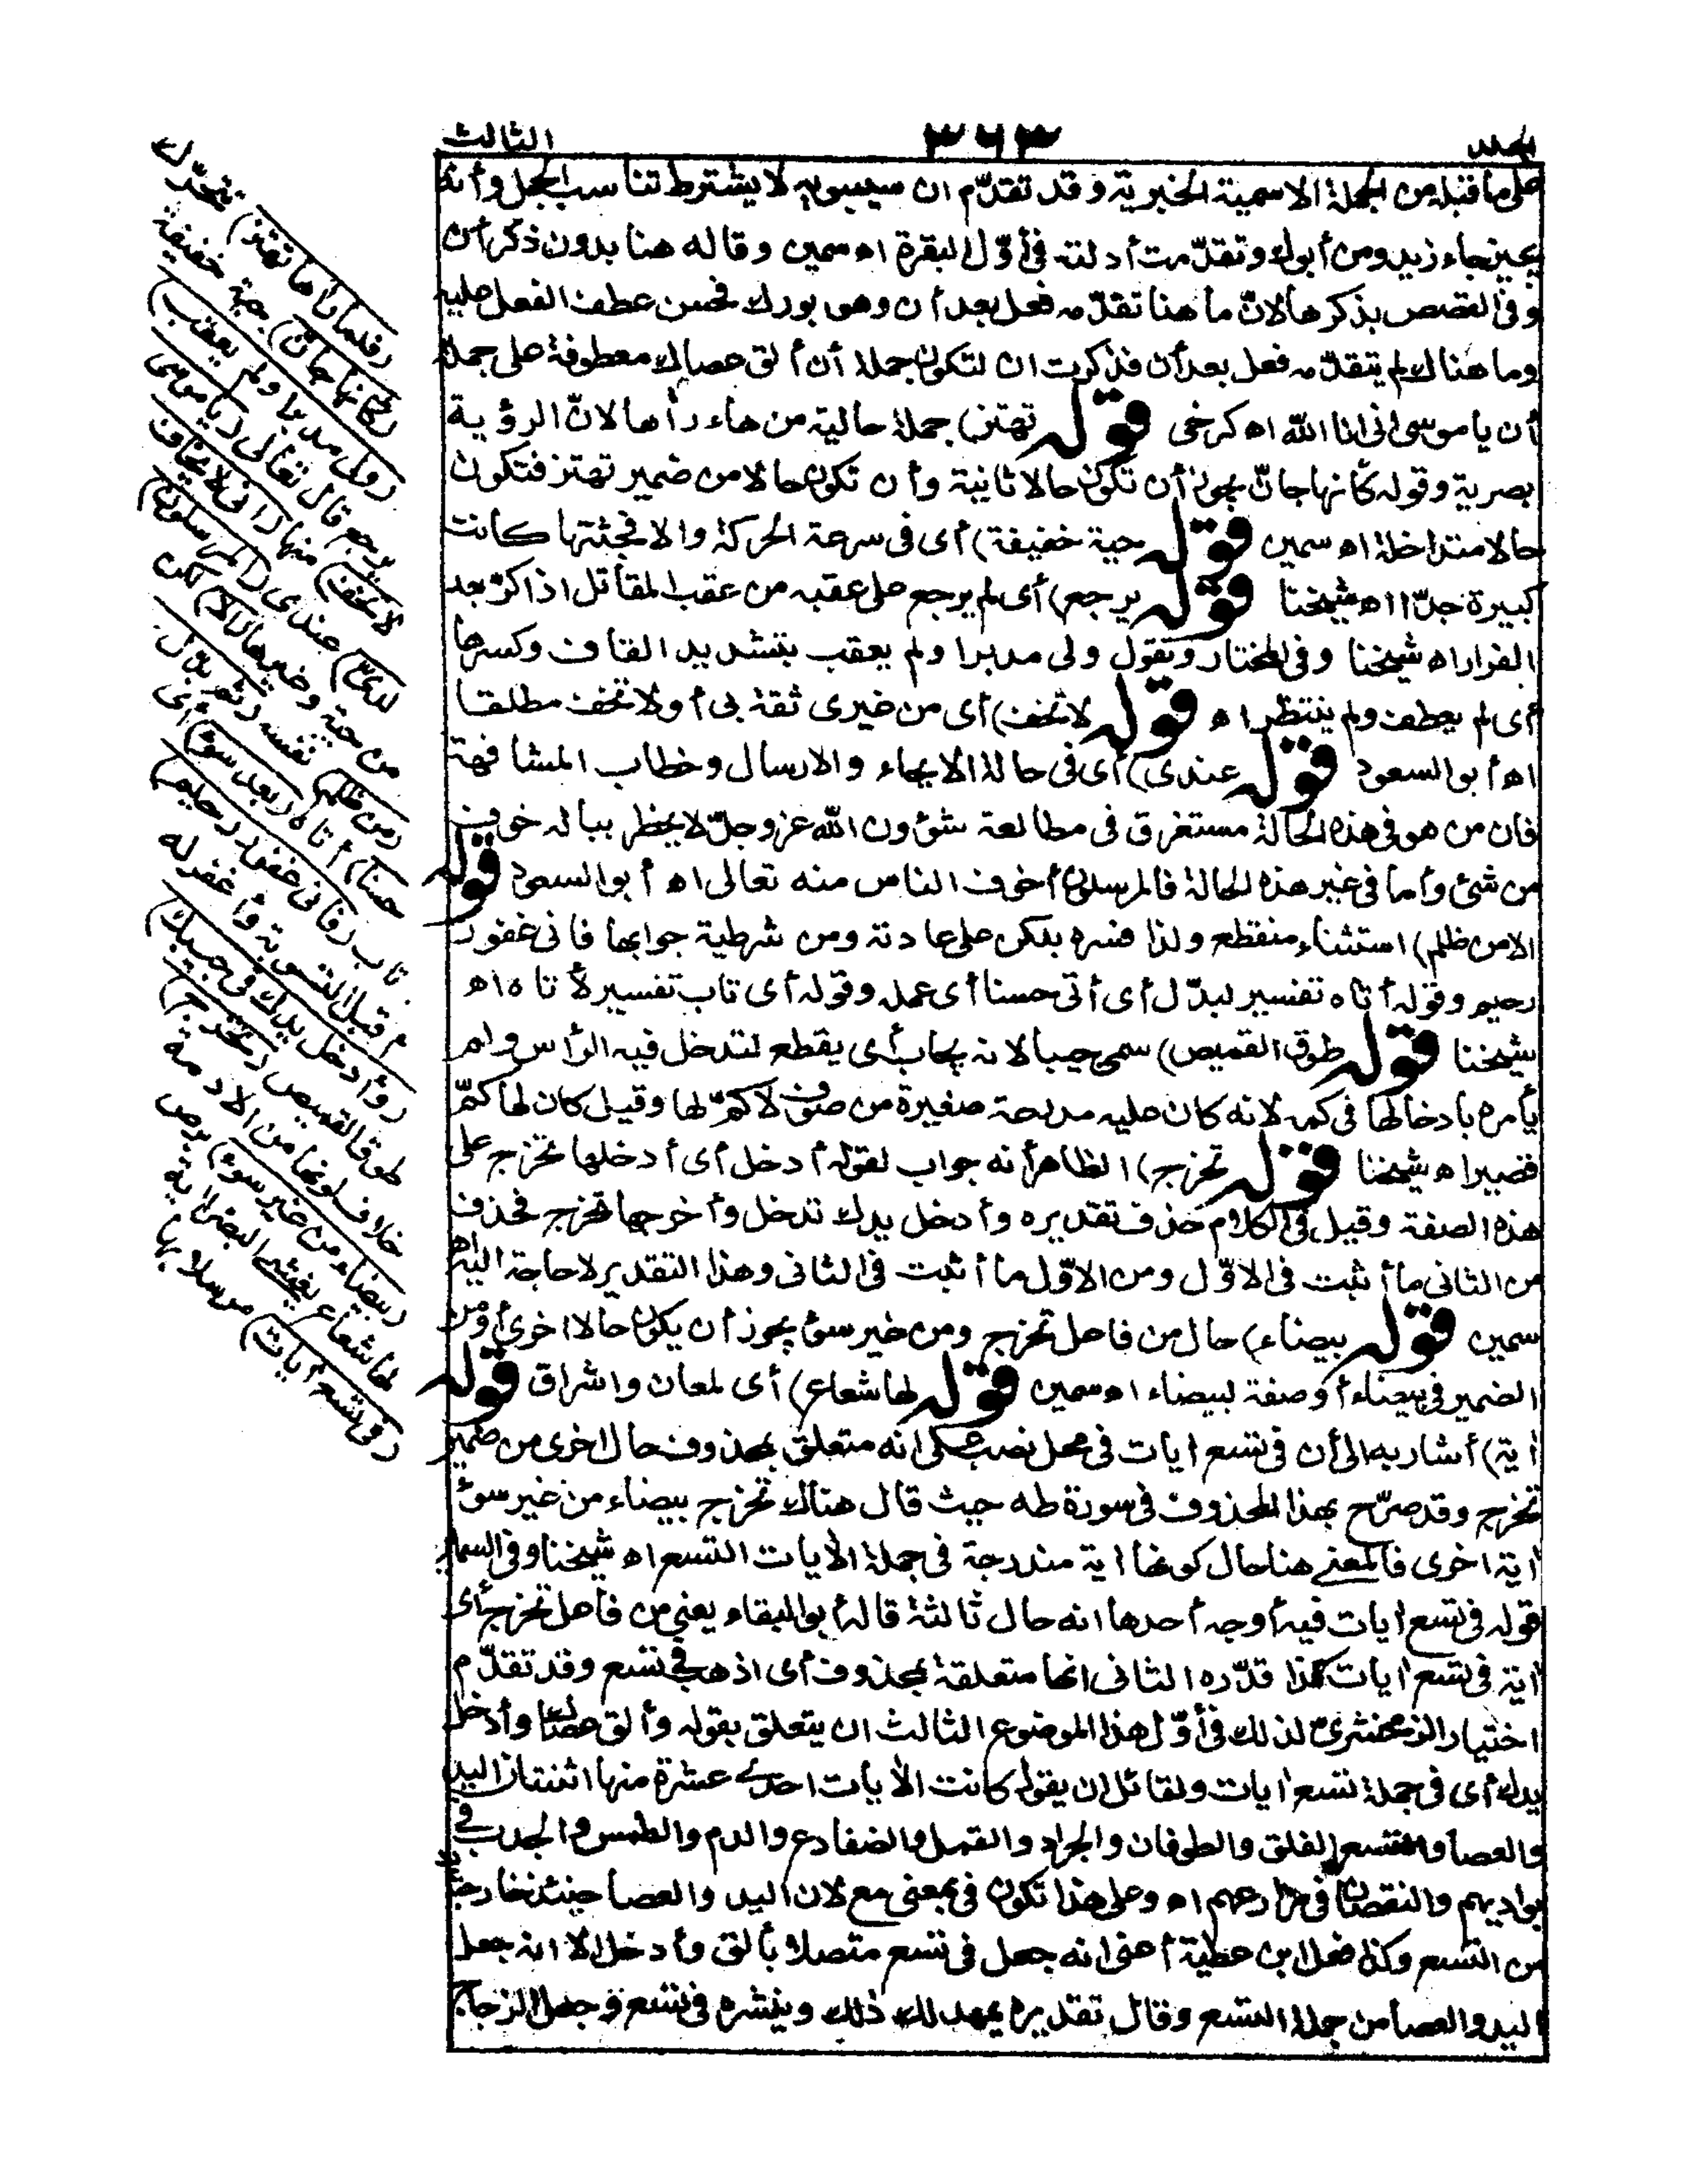 المجلد
٣٦٣
الثالث
على ما قبله من الجملة الاسمية الخبرية وقد تقدّم ان سيبويه لا يشترط تناسب الجمل وأنه
يجيز جاء زيد ومن أبوك وتقدّمت أدلته فى أوّل البقرة اه سمين وقاله هنا بدون ذكر أن
وفى القصص بذكرها لانّ ما هنا تقدّمه فعل بعد أن وهو بورك فحسن عطف الفعل عليه
وما هناك لم يتقدّمه فعل بعد أن فذكرت ان لتكون جملة أن ألق عصاك معطوفة على جملة
أن يا موسى انى انا الله اه كرخى قوله تهتز) جملة حالية من هاء رأها لانّ الرؤية
بصرية وقوله كأنها جانّ يجوز أن تكون حالا ثانية وأن تكون حالا من ضمير تهتز فتكون
حالا متداخلة اه سمين قوله حية خفيفة) أى فى سرعة الحركة والا فجثتها كانت
كبيرة جدّا اه شيخنا قوله يرجع) أى لم يرجع على عقبه من عقب المقاتل اذا كرّ بعد
الفرار اه شيخنا وفى المختار وتقول ولى مدبرا ولم يعقب بتشديد القاف وكسرها
أى لم يعطف ولم ينتظر اه قوله لا تخف) أى من غيرى ثقة بى أو لا تخف مطلقا
اه أبو السعود قوله عندى) أى فى حالة الايحاء والارسال وخطاب المشافهة
فان من هو فى هذه الحالة مستغرق فى مطالعة شؤون الله عز وجلّ لا يخطر بباله خوف
من شئ وأما فى غير هذه الحالة فالمرسلون أخوف الناس منه تعالى اه أبو السعود قوله
الا من ظلم) استثناء منقطع ولذا فسره بلكن على عادته ومن شرطية جوابها فانى غفور
رحيم وقوله أتاه تفسير لبدّل أى أتى حسنا أى عمله وقوله أى تاب تفسير لأتاه اه
شيخنا قوله طوق القميص) سمى جيبا لانه يجاب أى يقطع لتدخل فيه الرأس ولم
يأمره بادخالها فى كمه لانه كان عليه مدرعة صغيرة من صوف لا كمّ لها وقيل كان لها كمّ
قصير اه شيخنا قوله تخرج) الظاهر أنه جواب لقوله أدخل أى أدخلها تخرج على
هذه الصفة وقيل فى الكلام حذف تقديره وأدخل يدك تدخل وأخرجها تخرج فحذف
من الثانى ما أثبت فى الاوّل ومن الاوّل ما أثبت فى الثانى وهذا التقدير لا حاجة اليه اه
سمين قوله بيضاء) حال من فاعل تخرج ومن غير سوء يجوز أن يكون حالا اخرى أو من
الضمير فى بيضاء أو صفة لبيضاء اه سمين قوله لها شعاع) أى لمعان واشراق قوله
أية) أشار به الى أن فى تسع ايات فى محل نصب على انه متعلق بمحذوف حال اخرى من ضمير
تخرج وقد صرّح بهذا المحذوف فى سورة طه حيث قال هناك تخرج بيضاء من غير سوء
أية اخرى فالمعنى هنا حال كونها اية مندرجة فى جملة الأيات التسع اه شيخنا وفى السمين
قوله فى تسع أيات فيه أوجه أحدها انه حال ثالثة قاله أبو البقاء يعنى من فاعل تخرج أى
أية فى تسع أيات كذا قدّره الثانى انها متعلقة بمحذوف أى اذهب فى تسع وقد تقدّم
اختيار الزمخشرى لذلك فى أوّل هذا الموضوع الثالث ان يتعلق بقوله وألق عصاك وأدخل
يدك أى فى جملة تسع أيات ولقائل ان يقول كانت الأيات احدى عشرة منها اثنتان اليد
والعصا والتسع الفلق والطوفان والجراد والقمل والضفادع والدم والطمس والجدب فى
بواديهم والنقصان فى مزارعهم اه وعلى هذا تكون فى بمعنى مع لان اليد والعصا حينئذ خارجتان
من التسع وكذا فعل ابن عطية أعنى انه جعل فى تسع متصلا بألق وأدخل الا انه جعل
اليد والعصا من جملة التسع وقال تقديره يمهد لك ذلك وينشره فى تسع وجعل الزجاج
(فلما رأها تهتز) تتحرّك
(كأنها جانّ) حية خفيفة
(ولى مدبرا ولم يعقب)
يرجع قال تعالى (يا موسى
لا تخف) منها (انى لا يخاف
لدىّ) عندى (المرسلون)
من حية وغيرها (الا) لكن
(من ظلم) نفسه (ثم بدّل
حسنا) أتاه (بعد سوء) أى
تاب (فانى غفور رحيم)
أقبل التوبة وأغفر له
(وأدخل يدك فى جيبك)
طوق القميص (تخرج)
خلاف لونها من الادمة
(بيضاء من غير سوء) برص
لها شعاع يغشى البصر أية
(فى تسع أيات) مرسلا بها